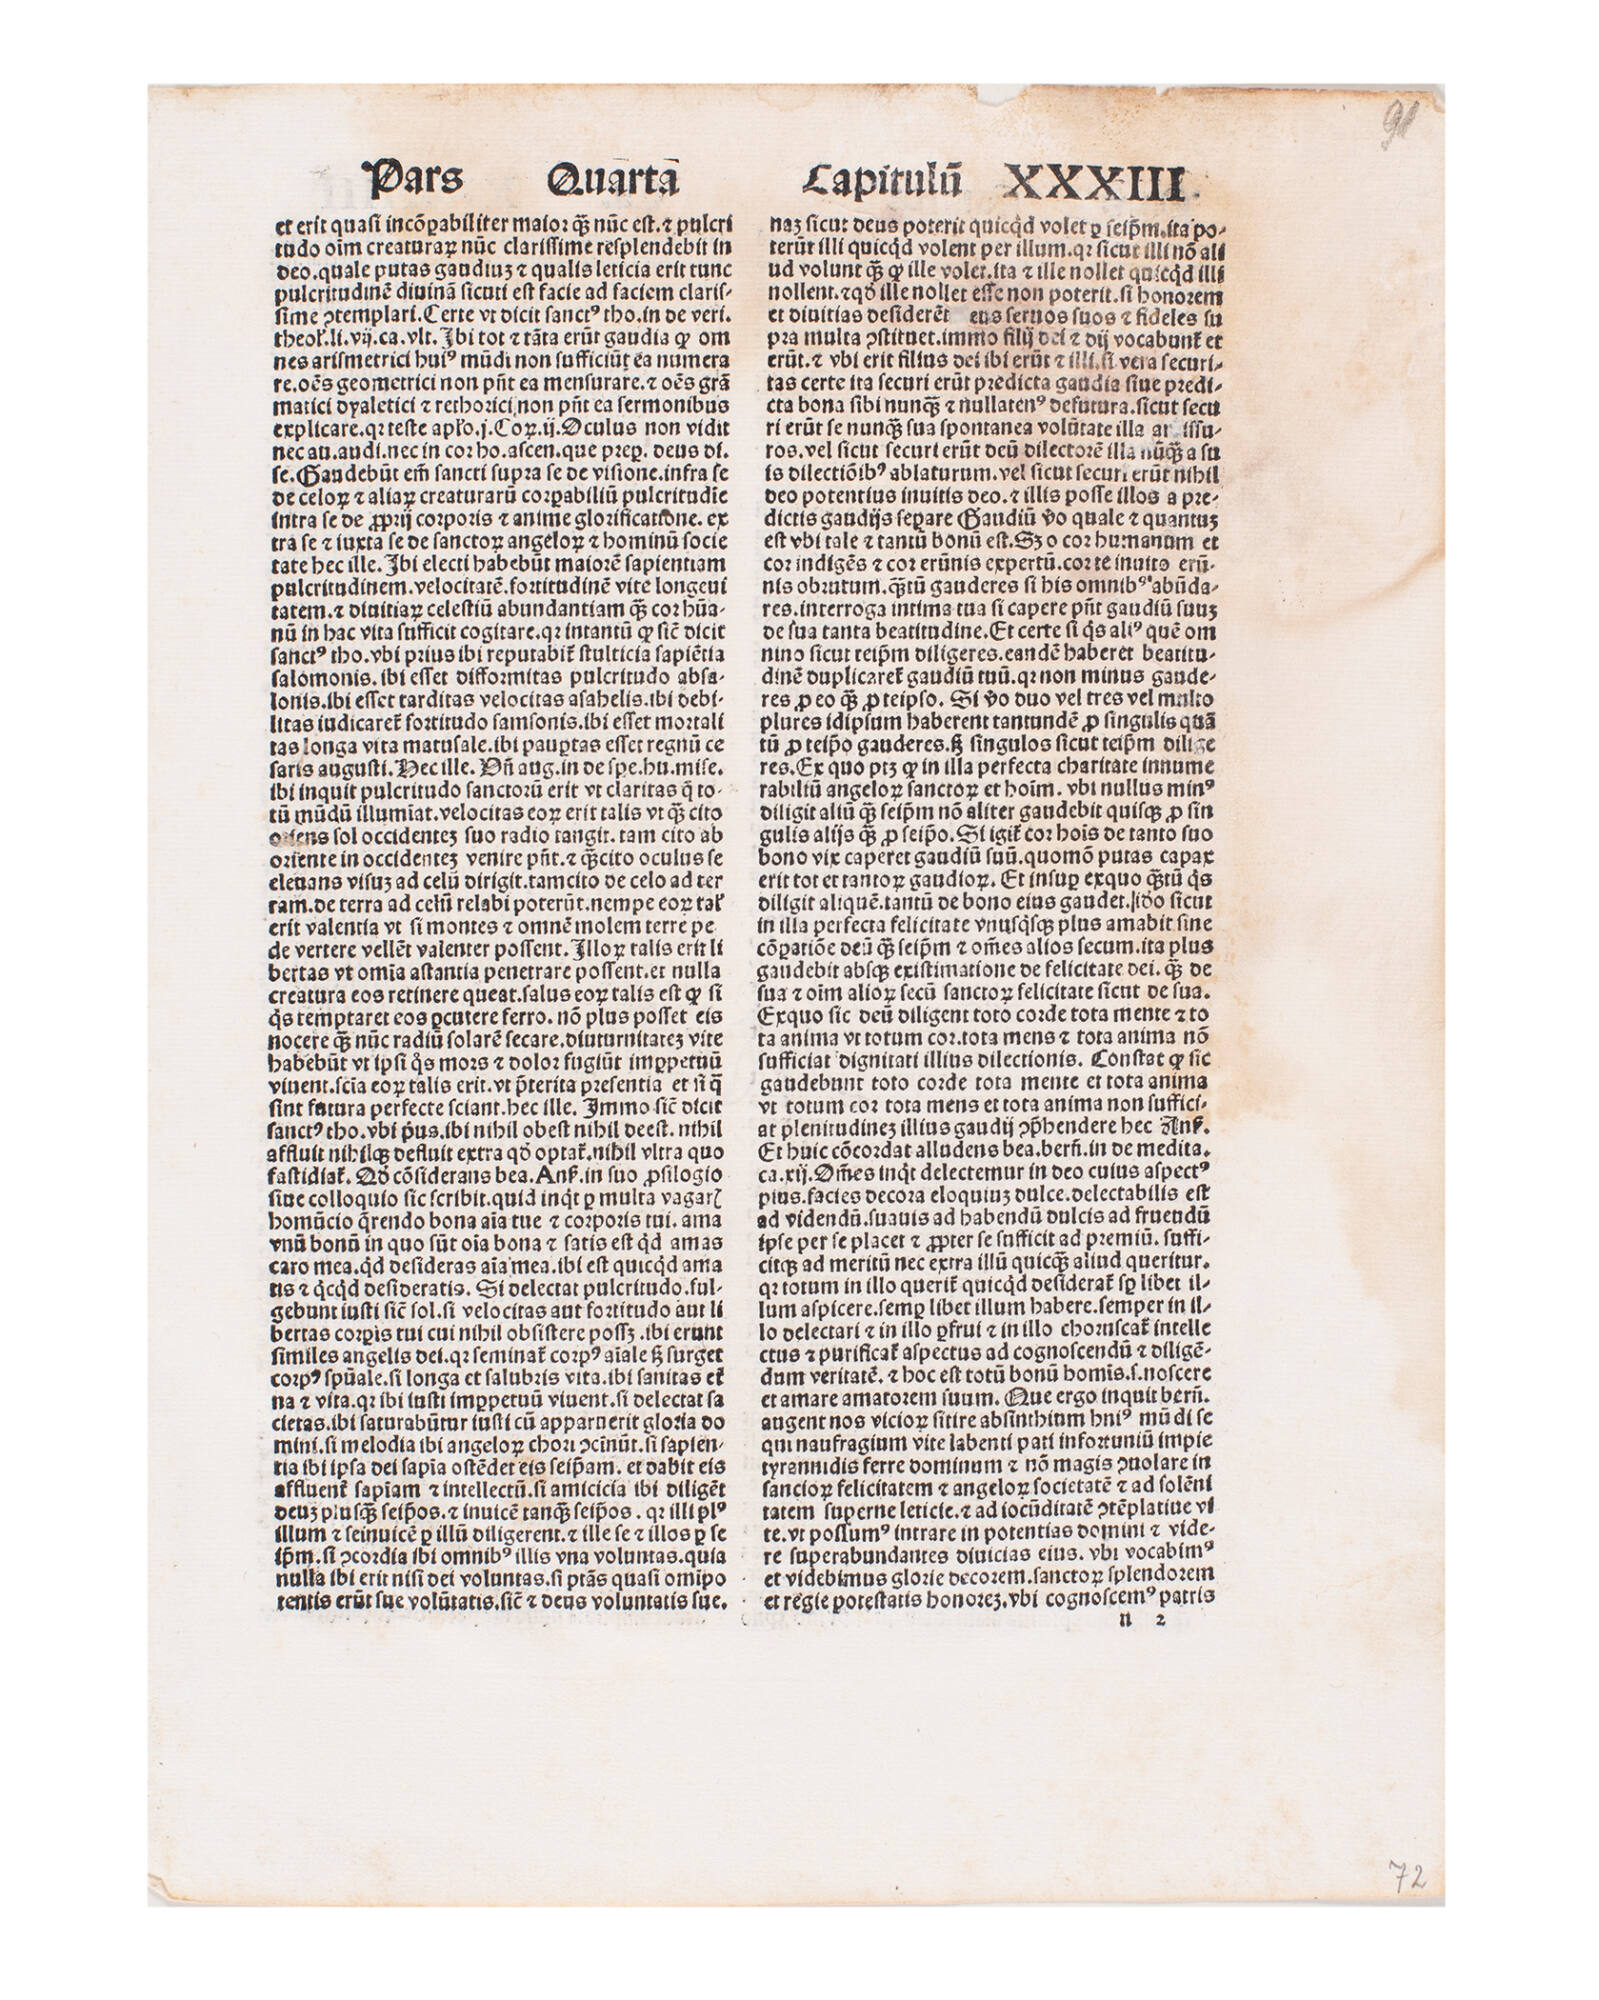 91
Pars Quarta Capitulū XXXIII
et erit quasi incōpabiliter maior q̄ꝫ nūc est. ⁊ pulcri
tudo oīm creaturaꝝ nūc clarissime resplendebit in
deo. quale putas gaudiuꝫ ⁊ qualis leticia erit tunc
pulcritudinē diuinā sicuti est facie ad faciem claris-
sime ꝯtemplari. Certe vt dicit sanctꝰ tho. in de veri.
theoł. li. vij. ca. vlt. Ibi tot ⁊ tāta erūt gaudia ꝙ om
nes arismetrici huiꝰ mūdi non sufficiūt ea numera
re. oēs geometrici non pn̄t ea mensurare. ⁊ oēs grā
matici dyaletici ⁊ rethorici non pn̄t ea sermonibus
explicare. qꝛ teste apło. j. Coꝝ. ij. Oculus non vidit
nec au. audi. nec in cor ho. ascen. que prep. deus di.
se. Gaudebūt em̄ sancti supra se de visione. infra se
de celoꝝ ⁊ aliaꝝ creaturarū corpabiliū pulcritudīe
intra se de ꝓprij corporis ⁊ anime glorificatione. ex
tra se ⁊ iuxta se de sanctoꝝ angeloꝝ ⁊ hominū socie
tate hec ille. Ibi electi habebūt maiorē sapientiam
pulcritudinem. velocitatē. fortitudinē vite longeui
tatem. ⁊ diuitiaꝝ celestiū abundantiam q̄ꝫ cor hūa-
nū in hac vita sufficit cogitare. qꝛ intantū ꝙ sic̄ dicit
sanctꝰ tho. vbi prius ibi reputabit̄ stulticia sapiētia
salomonis. ibi esset difformitas pulcritudo absa-
lonis. ibi esset tarditas velocitas asahelis. ibi debi-
litas iudicaret̄ fortitudo samsonis. ibi esset mortali
tas longa vita matusale. ibi paup̄tas esset regnū ce
saris augusti. Hec ille. Vn̄ aug. in de spe. hu. mise.
ibi inquit pulcritudo sanctorū erit vt claritas q̄ to-
tū mūdū illumīat. velocitas eoꝝ erit talis vt q̄ꝫ cito
oriens sol occidenteꝫ suo radio tangit. tam cito ab
oriente in occidenteꝫ venire pn̄t. ⁊ q̄ꝫcito oculus se
eleuans visuꝫ ad celū dirigit. tamcito de celo ad ter
ram. de terra ad celū relabi poterūt. nempe eoꝝ tał
erit valentia vt si montes ⁊ omnē molem terre pe
de vertere vellēt valenter possent. Illoꝝ talis erit li
bertas vt omīa astantia penetrare possent. et nulla
creatura eos retinere queat. salus eoꝝ talis est ꝙ si
q̇s temptaret eos ꝑcutere ferro. nō plus posset eis
nocere q̄ꝫ nūc radiū solarē secare. diuturnitateꝫ vite
habebūt vt ipsi q̇s mors ⁊ dolor fugiūt imꝑpetuū
viuent. scīa eoꝝ talis erit. vt p̄terita presentia et si q̄
sint futura perfecte sciant. hec ille. Immo sic̄ dicit
sanctꝰ tho. vbi p̓us. ibi nihil obest nihil deest. nihil
affluit nihilqꝫ defluit extra qđ optat̄. nihil vltra quo
fastidiat̄. Qđ cōsiderans bea. Anẜ. in suo ꝓsilogio
siue colloquio sic scribit. quid inq̇t ꝑ multa vagarꝭ
homūcio q̄rendo bona aīa tue ⁊ corporis tui. ama
vnū bonū in quo sūt oīa bona ⁊ satis est q̇d amas
caro mea. q̇d desideras aīa mea. ibi est quicq̇d ama
tis ⁊ q̇cq̇d desideratis. Si delectat pulcritudo. ful-
gebunt iusti sic̄ sol. si velocitas aut fortitudo aut li
bertas corꝑis tui cui nihil obsistere possꝫ. ibi erunt
similes angelis dei. qꝛ seminat̄ corpꝰ aīale sꝫ surget
corpꝰ spūale. si longa et salubris vita. ibi sanitas et̄
na ⁊ vita. qꝛ ibi iusti imꝑpetuū viuent. si delectat sa
cietas. ibi saturabūtur iusti cū apparuerit gloria do
mini. si melodia ibi angeloꝝ chori ꝯcīnūt. si sapien-
tia ibi ipsa dei sapīa ostēdet eis seip̄am. et dabit eis
affluent̄ sapīam ⁊ intellectū. si amicicia ibi diligēt
deuꝫ plusq̄ꝫ seip̄os. ⁊ inuicē tanq̄ꝫ seip̄os. qꝛ illi plꝰ
illum ⁊ seinuicē ꝑ illū diligerent. ⁊ ille se ⁊ illos ꝑ se
ip̄m. si ꝯcordia ibi omnibꝰ illis vna voluntas. quia
nulla ibi erit nisi dei voluntas. si ptās quasi omīpo
tentis erūt sue volūtatis. sic̄ ⁊ deus voluntatis sue.
naꝫ sicut deus poterit quicq̇d volet ꝑ seip̄m. ita po-
terūt illi quicq̇d volent per illum. qꝛ sicut illi nō ali
ud volunt q̄ꝫ ꝙ ille volet. ita ⁊ ille nollet quicq̇d illi
nollent. ⁊ qđ ille nollet esse non poterit. si honorem
et diuitias desiderēt eus seruos suos ⁊ fideles su
pra multa ꝯstituet. immo filij dei ⁊ dij vocabunt̄ et
erūt. ⁊ vbi erit filius dei ibi erūt ⁊ illi. si vera securi-
tas certe ita securi erūt predicta gaudia siue predi-
cta bona sibi nunq̄ꝫ ⁊ nullatenꝰ defutura. sicut secu
ri erūt se nunq̄ꝫ sua spontanea volūtate illa
ros. vel sicut securi erūt deū dilectorē illa nūq̄ꝫ a su
is dilectōibꝰ ablaturum. vel sicut securi erūt nihil
deo potentius inuitis deo. ⁊ illis posse illos a pre-
dictis gaudijs seꝑare Gaudiū v̓o quale ⁊ quantuꝫ
est vbi tale ⁊ tantū bonū est. Sꝫ o cor humanum et
cor indigēs ⁊ cor erūnis expertū. cor te inuito erū-
nis obrutum. q̄ꝫtū gauderes si his omnibꝰ abūda-
res. interroga intima tua si capere pn̄t gaudiū suuꝫ
de sua tanta beatitudine. Et certe si q̇s aliꝰ quē om
nino sicut teip̄m diligeres. eandē haberet beatitu-
dinē duplicaret̄ gaudiū tuū. qꝛ non minus gaude-
res ꝓ eo q̄ꝫ ꝓ teipso. Si v̓o duo vel tres vel multo
plures idipsum haberent tantundē ꝓ singulis quā
tū ꝓ teip̄o gauderes. sꝫ singulos sicut teip̄m dilige
res. Ex quo ptꝫ ꝙ in illa perfecta charitate innume
rabiliū angeloꝝ sanctoꝝ et hoīm. vbi nullus minꝰ
diligit aliū q̄ꝫ seip̄m nō aliter gaudebit quisqꝫ ꝓ sin
gulis alijs q̄ꝫ ꝓ seip̄o. Si igit̄ cor hoīs de tanto suo
bono vix caperet gaudiū suū. quomō putas capax
erit tot et tantoꝝ gaudioꝝ. Et insuꝑ exquo q̄ꝫtū q̇s
diligit aliquē. tantū de bono eius gaudet. Ideo sicut
in illa perfecta felicitate vnusq̇sqꝫ plus amabit sine
cōꝑatiōe deū q̄ꝫ seip̄m ⁊ om̄es alios secum. ita plus
gaudebit absqꝫ existimatione de felicitate dei. q̄ꝫ de
sua ⁊ oīm alioꝝ secū sanctoꝝ felicitate sicut de sua.
Exquo sic deū diligent toto corde tota mente ⁊ to
ta anima vt totum cor. tota mens ⁊ tota anima nō
sufficiat dignitati illius dilectionis. Constat ꝙ sic
gaudebunt toto corde tota mente et tota anima
vt totum cor tota mens et tota anima non suffici-
at plenitudineꝫ illius gaudij ꝯp̄hendere hec Anẜ.
Et huic cōcordat alludens bea. bern̄. in de medita.
ca. xij. Om̄es inq̇t delectemur in deo cuius aspectꝰ
pius. facies decora eloquiuꝫ dulce. delectabilis est
ad videndū. suauis ad habendū dulcis ad fruendū
ipse per se placet ⁊ ꝓpter se sufficit ad premiū. suffi-
citqꝫ ad meritū nec extra illū quicq̄ꝫ aliud queritur.
qꝛ totum in illo querit̄ quicq̇d desiderat̄ sꝑ libet il-
lum aspicere. semꝑ libet illum habere. semper in il-
lo delectari ⁊ in illo ꝑfrui ⁊ in illo choruscat̄ intelle
ctus ⁊ purificat̄ aspectus ad cognoscendū ⁊ diligē-
dum veritatē. ⁊ hoc est totū bonū homīs. s. noscere
et amare amatorem suum. Que ergo inquit bern̄.
augent nos vicioꝝ sitire absinthium huiꝰ mūdi se
qui naufragium vite labenti pati infortuniū impie
tyrannidis ferre dominum ⁊ nō magis ꝯuolare in
sancioꝝ felicitatem ⁊ angeloꝝ societatē ⁊ ad solēni
tatem superne leticie. ⁊ ad iocūditatē ꝯtēplatiue vi
te. vt possumꝰ intrare in potentias domini ⁊ vide-
re superabundantes diuicias eius. vbi vocabimꝰ
et videbimus glorie decorem. sanctoꝝ splendorem
et regie potestatis honoreꝫ. vbi cognoscemꝰ patris
n 2
72